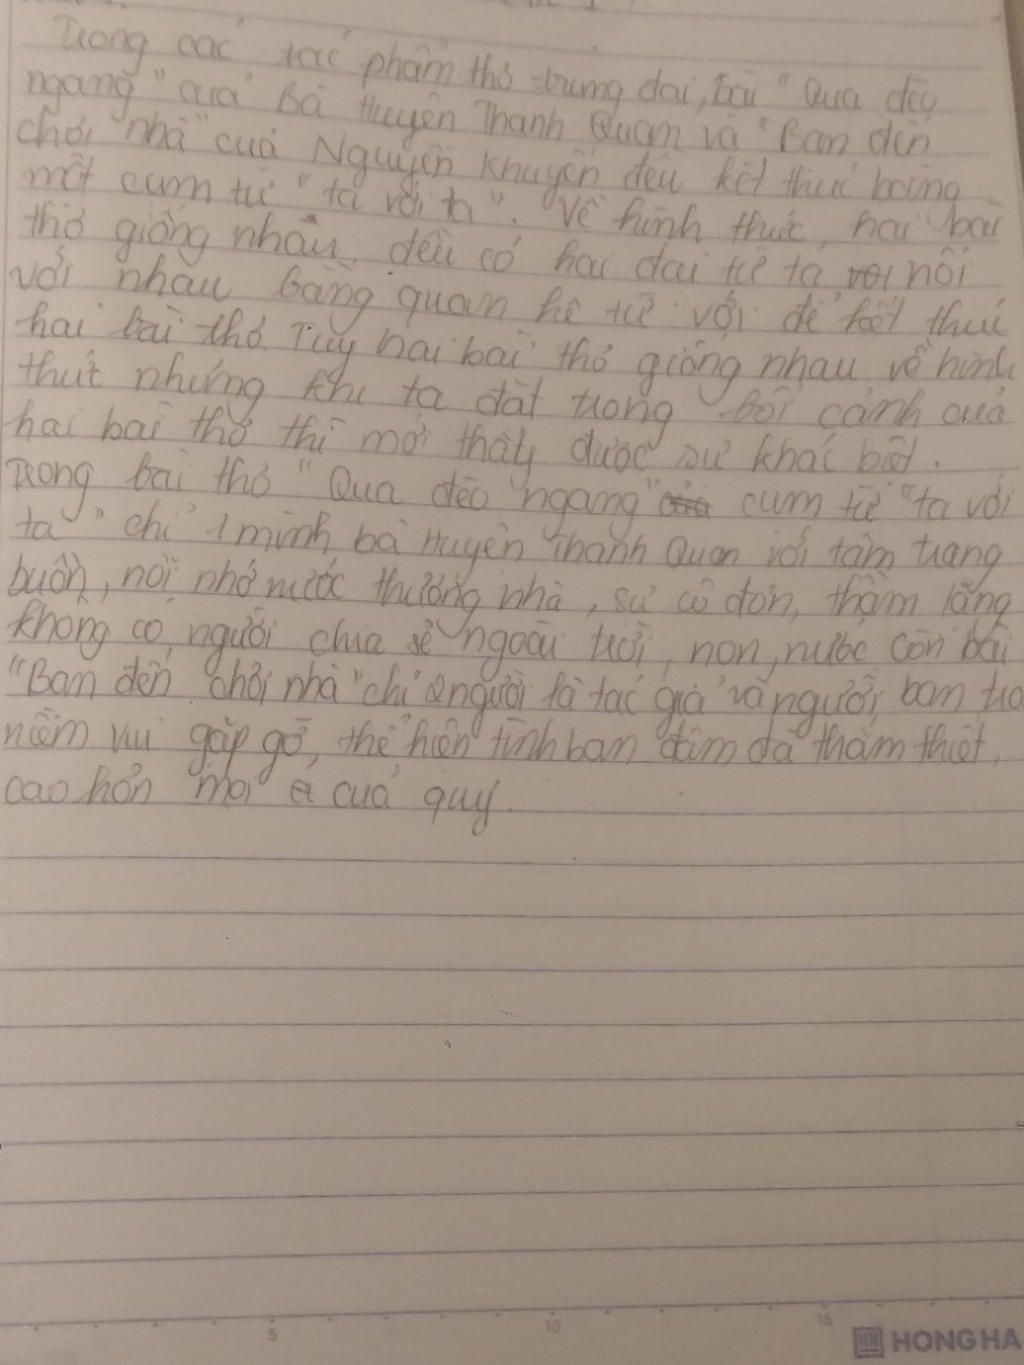 Trong các tác phẩm thơ trung đại, bài "Qua đèo
ngang" của Bà Huyện Thanh Quan và "Bạn đến
chơi nhà" của Nguyễn Khuyến đều kết thúc bằng
một cụm từ "ta với ta". Về hình thức, hai bài
thơ giống nhau, đều có hai đại từ ta nối
với nhau bằng quan hệ từ với để kết thúc
hai bài thơ. Tuy hai bài thơ giống nhau về hình
thức nhưng khi ta đặt trong bối cảnh của
hai bài thơ thì mới thấy được sự khác biệt.
Trong bài thơ "Qua đèo ngang" cụm từ "ta với
ta" chỉ 1 mình bà Huyện Thanh Quan với tâm trạng
buồn, nỗi nhớ nước thương nhà, sự cô đơn, thầm lặng
không có người chia sẻ ngoài trời, non, nước còn bài
"Bạn đến chơi nhà" chỉ 2 người là tác giả và người bạn tro
niềm vui gặp gỡ, thể hiện tình bạn đậm đà thắm thiết,
cao hơn mọi của quý.
5 10 15
HONG HA